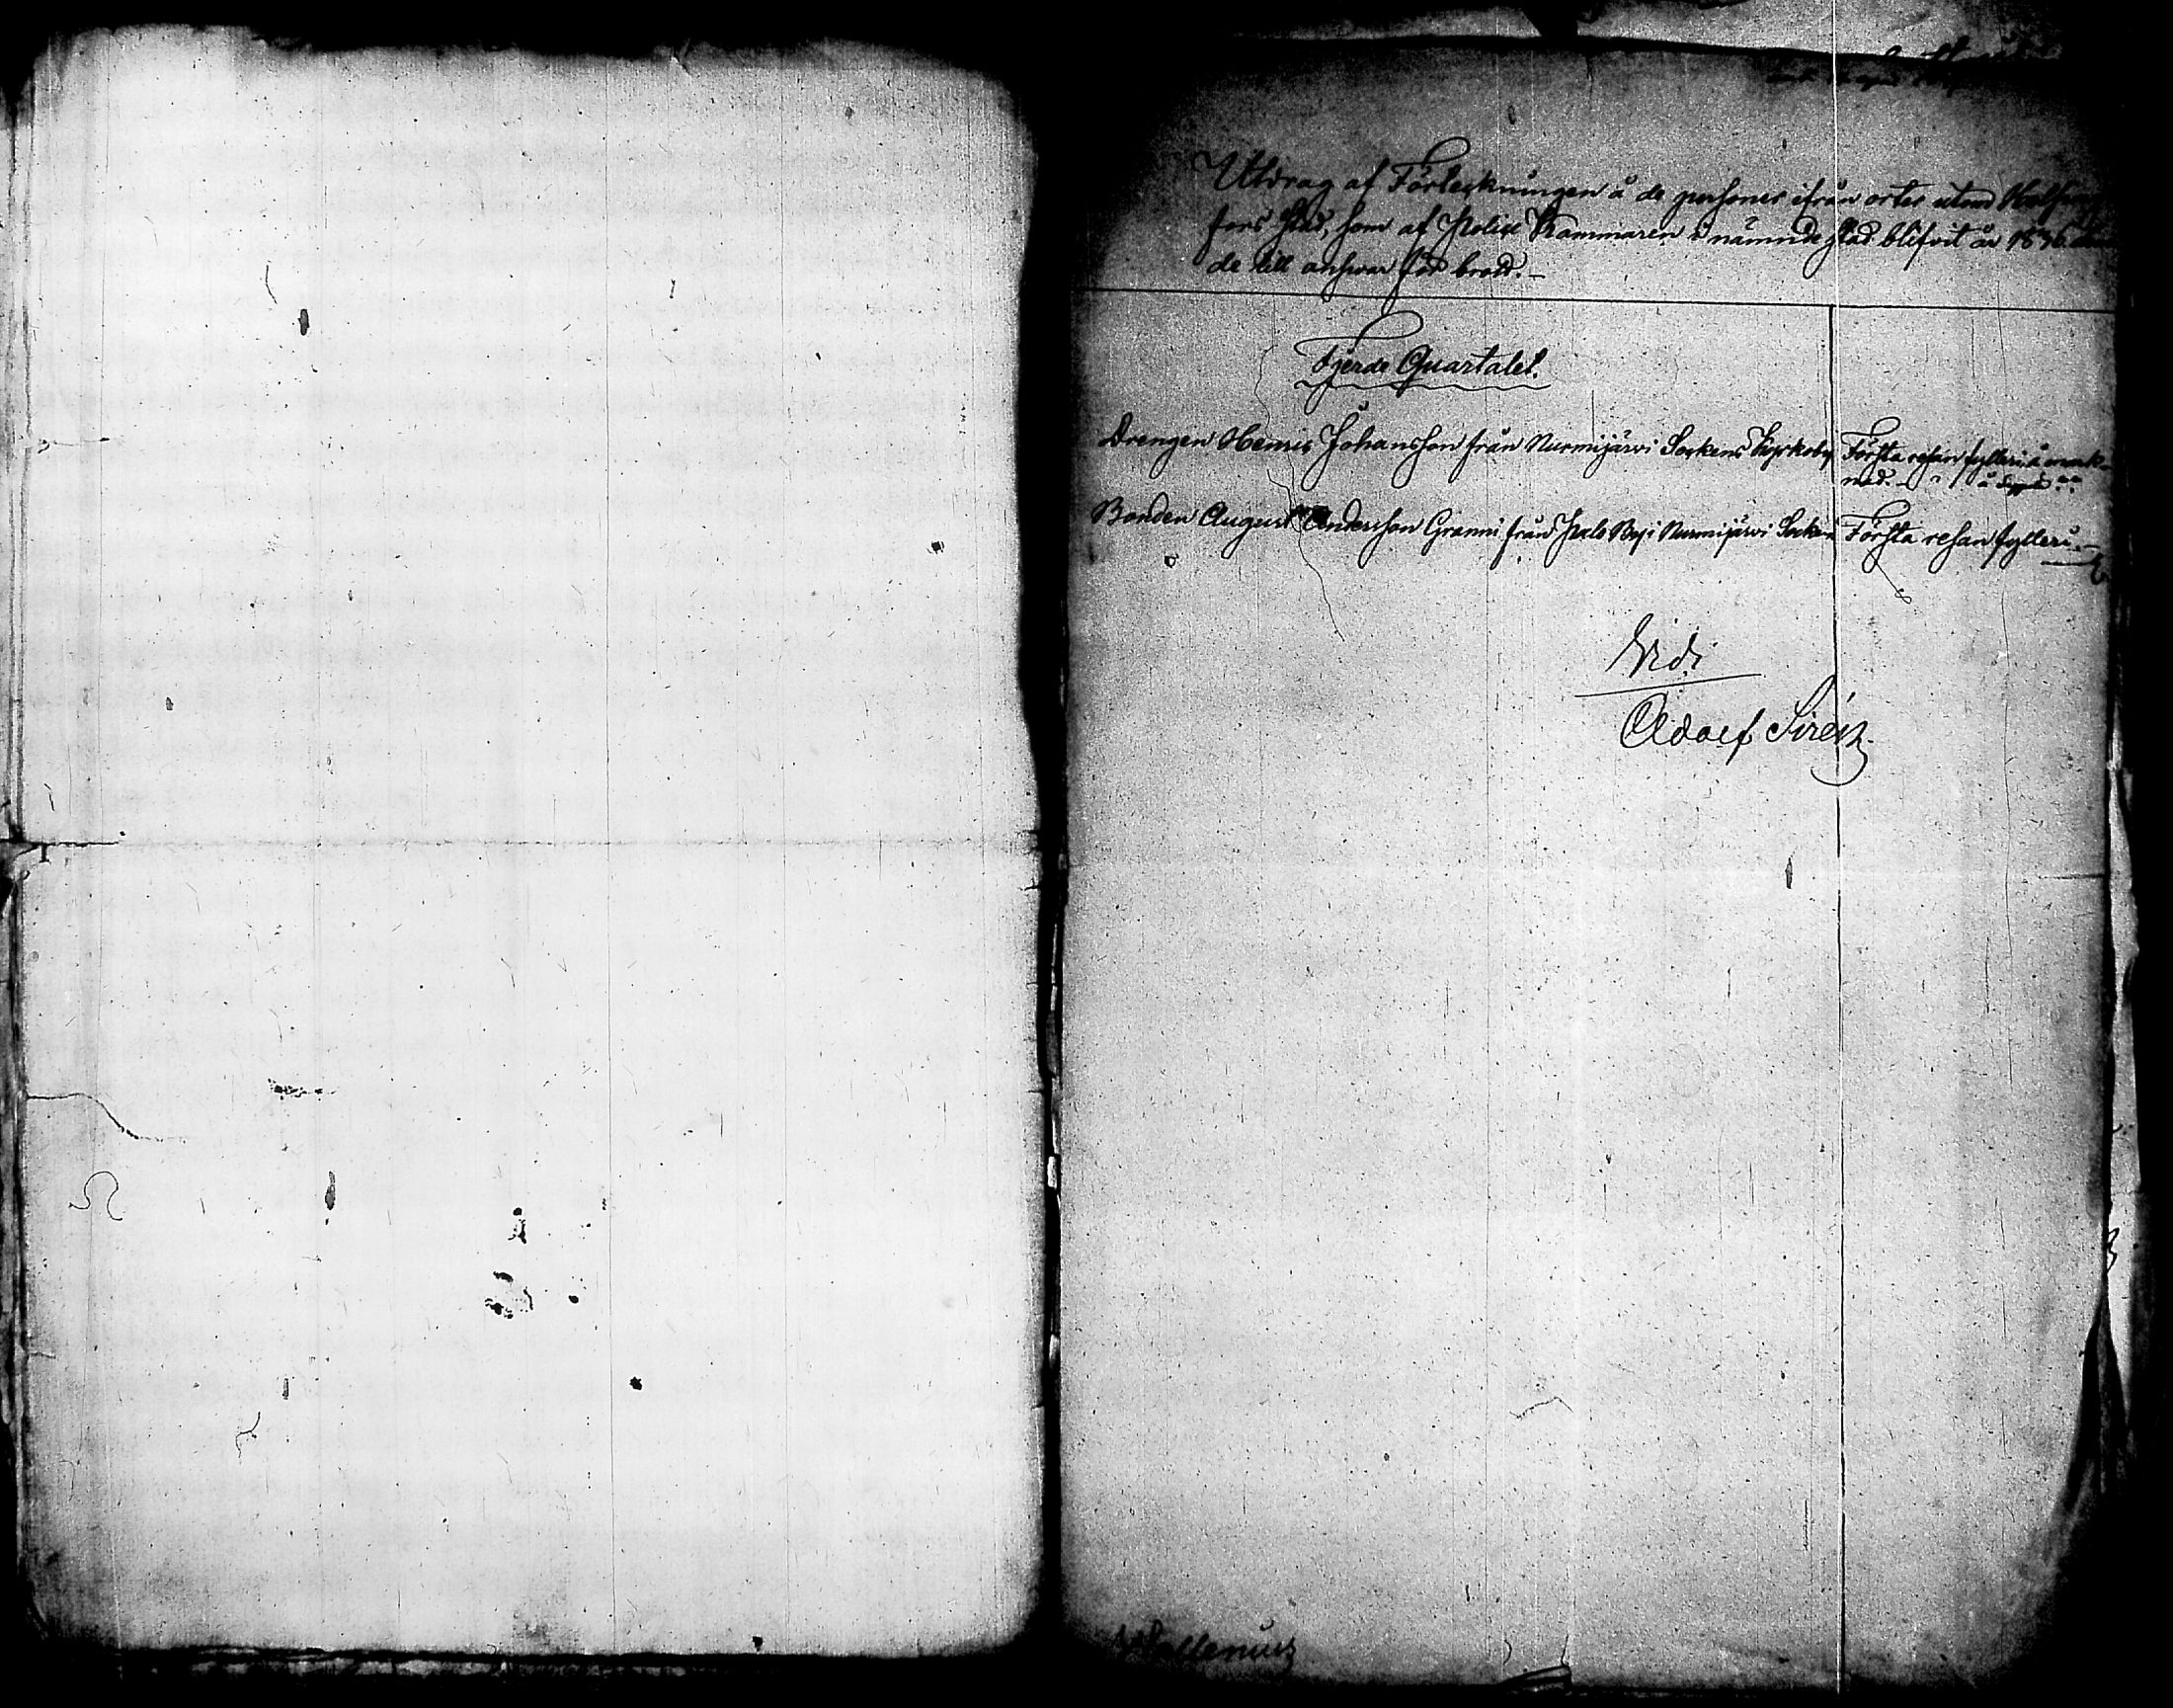 Utdrag af Förteckningen å de personer ifrån orter utom Helsing
fors stad, som af Police Kammaren i nämnde stad blifvit år 1836 döm
de till answar för brott.-
Fjerde Quartalet.
Drengen Henric Johansson från Nurmijärvi Sockens Kyrkoby
Första resan fylleri å mark-
nad.-
Bonden August Andersson Granni från Palo By i Nurmijärvi Socken
Första resan fylleri.-
Vidi
Adolf Sirén.
Wallenius